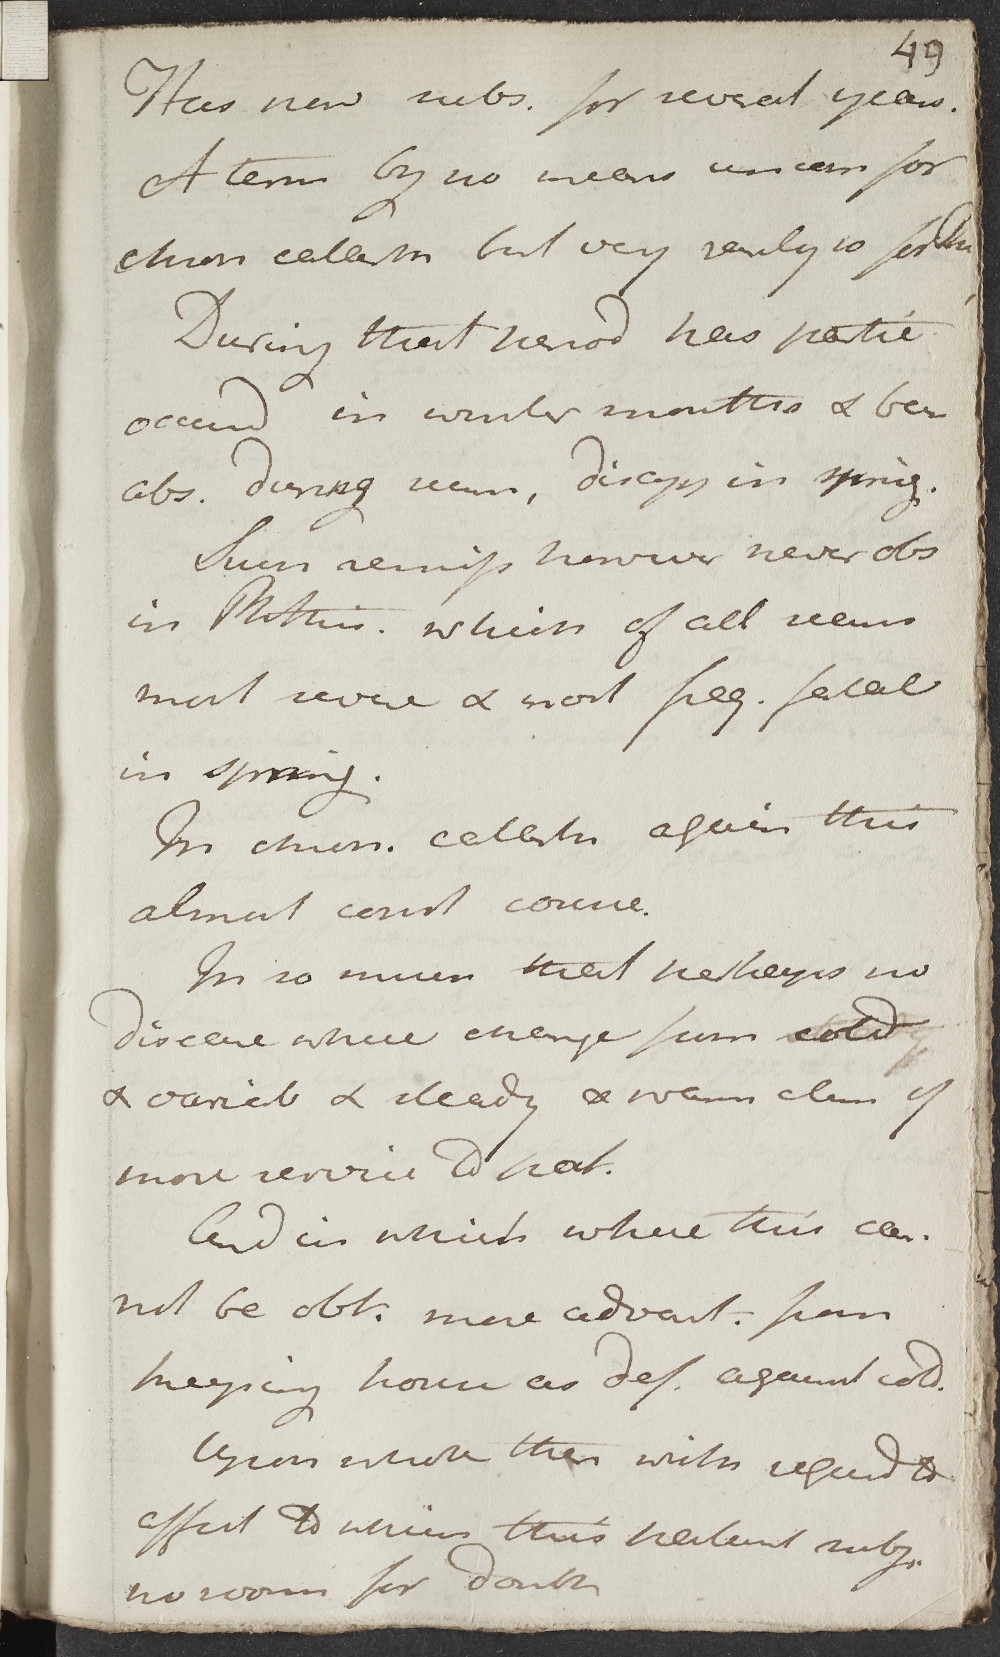 49
Has now subs. for several years.
A term by no means uncom for
chron catarrh but very rarely so for Phth
During that period has partic
occurrd in winter months & been
abs. during summ, disapp in spring.
Such remiss however never obs
in Phthis. which of all seasons
most severe & most freq. fatal
in spring.
In chron. catarrh again this
almost const course.
In so much that perhaps no
disease where change from cold
& variab & steady & warm clim of
more service to pat.
And in which where this can
not be obt. more advant. from
keeping house as def. against cold.
Upon whole then with regard to
affect to which this patient subj.
no room for doubt